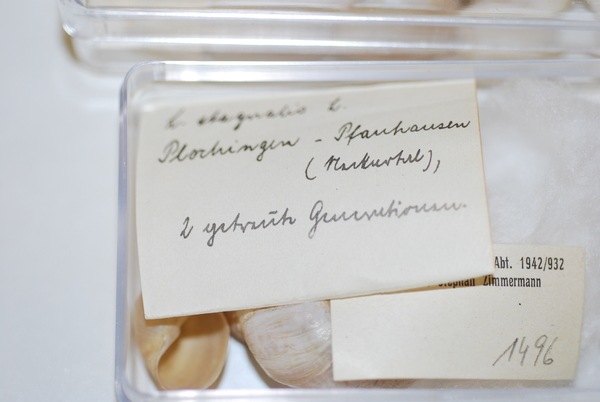 L. stagnalis L.
Plochingen - Pfauhausen
(Neckartal),
2 getreute Generationen.
Abt. 1942/932
Stephan Zimmermann
1496